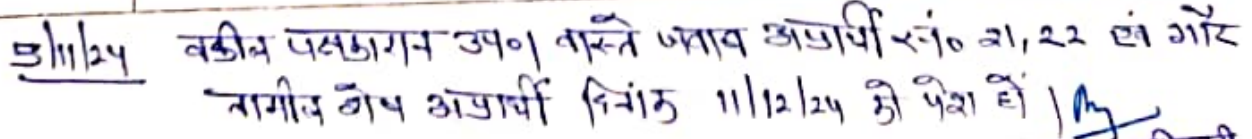 5/11/24 वकील पक्षकारान उप०। वास्ते जवाब अप्रार्थी सं० 21, 22 एवं गौर
तामील शेष अप्रार्थी दिनांक 11/12/24 को पेश हो।